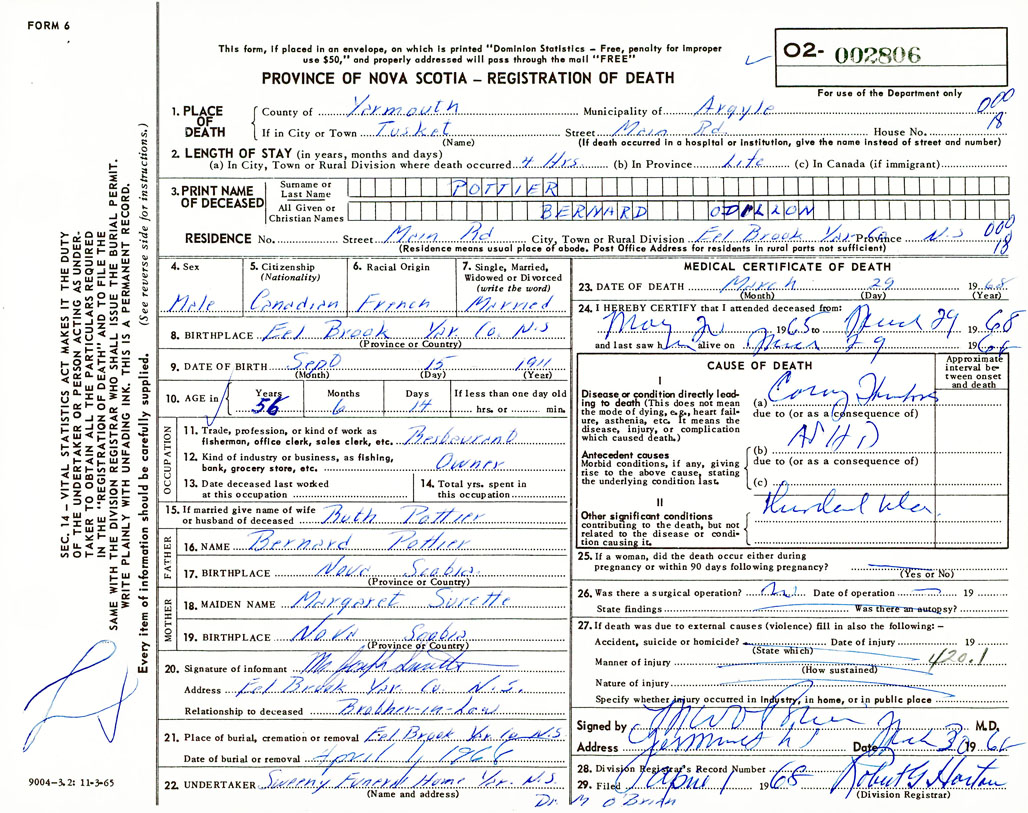 FORM 6
This form, if placed in an envelope, on which is printed "Dominion Statistics – Free, penalty for improper
use $50," and properly addressed will pass through the mail "FREE"
PROVINCE OF NOVA SCOTIA – REGISTRATION OF DEATH
O2- 002806
For use of the Department only
1. PLACE OF DEATH
County of Yarmouth Municipality of Argyle 000
If in City or Town Tusket Street Main Rd. House No. 18
(Name) (If death occurred in a hospital or institution, give the name instead of street and number)
2. LENGTH OF STAY (in years, months and days)
(a) In City, Town or Rural Division where death occurred 4 Hrs (b) In Province Life (c) In Canada (if immigrant)
3. PRINT NAME OF DECEASED
Surname or Last Name POTTIER
All Given or Christian Names BERNARD ODILLON
RESIDENCE No. Street Main Rd City, Town or Rural Division Eel Brook Yar. Co. Province N.S 000
(Residence means usual place of abode. Post Office Address for residents in rural parts not sufficient) 18
4. Sex Male
5. Citizenship (Nationality) Canadian
6. Racial Origin French
7. Single, Married, Widowed or Divorced (write the word) Married
8. BIRTHPLACE Eel Brook Yar. Co. N.S
(Province or Country)
9. DATE OF BIRTH Sept 15 1911
(Month) (Day) (Year)
10. AGE in Years 56 Months 6 Days 14 If less than one day old hrs. or min.
OCCUPATION
11. Trade, profession, or kind of work as
fisherman, office clerk, sales clerk, etc. Restaurant
12. Kind of industry or business, as fishing,
bank, grocery store, etc. Owner
13. Date deceased last worked
at this occupation
14. Total yrs. spent in
this occupation
15. If married give name of wife
or husband of deceased Ruth Pottier
FATHER
16. NAME Bernard Pottier
17. BIRTHPLACE Nova Scotia
(Province or Country)
MOTHER
18. MAIDEN NAME Margaret Surette
19. BIRTHPLACE Nova Scotia
(Province or Country)
20. Signature of informant Joseph Surette
Address Eel Brook Yar. Co. N.S.
Relationship to deceased Brother-in-Law
21. Place of burial, cremation or removal Eel Brook Yar. Co N.S.
Date of burial or removal April 1, 1968
22. UNDERTAKER Sweeny Funeral Home Yar. N.S.
(Name and address)
Dr. M O'Brian
MEDICAL CERTIFICATE OF DEATH
23. DATE OF DEATH March 29 1968
(Month) (Day) (Year)
24. I HEREBY CERTIFY that I attended deceased from:
May 1965 to March 29 1968
and last saw him alive on March 29 1968
CAUSE OF DEATH
Approximate interval between onset and death
I
Disease or condition directly leading to death (This does not mean
the mode of dying, e.g., heart failure, asthenia, etc. It means the
disease, injury, or complication
which caused death.)
(a)
due to (or as a consequence of)
ASHD
Antecedent causes
Morbid conditions, if any, giving
rise to the above cause, stating
the underlying condition last.
(b)
due to (or as a consequence of)
(c)
II
Other significant conditions
contributing to the death, but not
related to the disease or condition causing it.
25. If a woman, did the death occur either during
pregnancy or within 90 days following pregnancy?
(Yes or No)
26. Was there a surgical operation? Date of operation 19
State findings Was there an autopsy?
27. If death was due to external causes (violence) fill in also the following: –
Accident, suicide or homicide? Date of injury 19
(State which)
Manner of injury 420.1
(How sustained)
Nature of injury
Specify whether injury occurred in Industry, in home, or in public place
Signed by M.D.
Address Yarmouth Date March 30 1968
28. Division Registrar's Record Number
29. Filed April 1 1968 Robert G Horton
(Division Registrar)
SEC. 14 – VITAL STATISTICS ACT MAKES IT THE DUTY
OF THE UNDERTAKER OR PERSON ACTING AS UNDER-
TAKER TO OBTAIN ALL THE PARTICULARS REQUIRED
IN THE "REGISTRATION OF DEATH" AND TO FILE THE
SAME WITH THE DIVISION REGISTRAR WHO SHALL ISSUE THE BURIAL PERMIT.
WRITE PLAINLY WITH UNFADING INK. THIS IS A PERMANENT RECORD.
Every item of information should be carefully supplied. (See reverse side for instructions.)
9004-3.2: 11-3-65